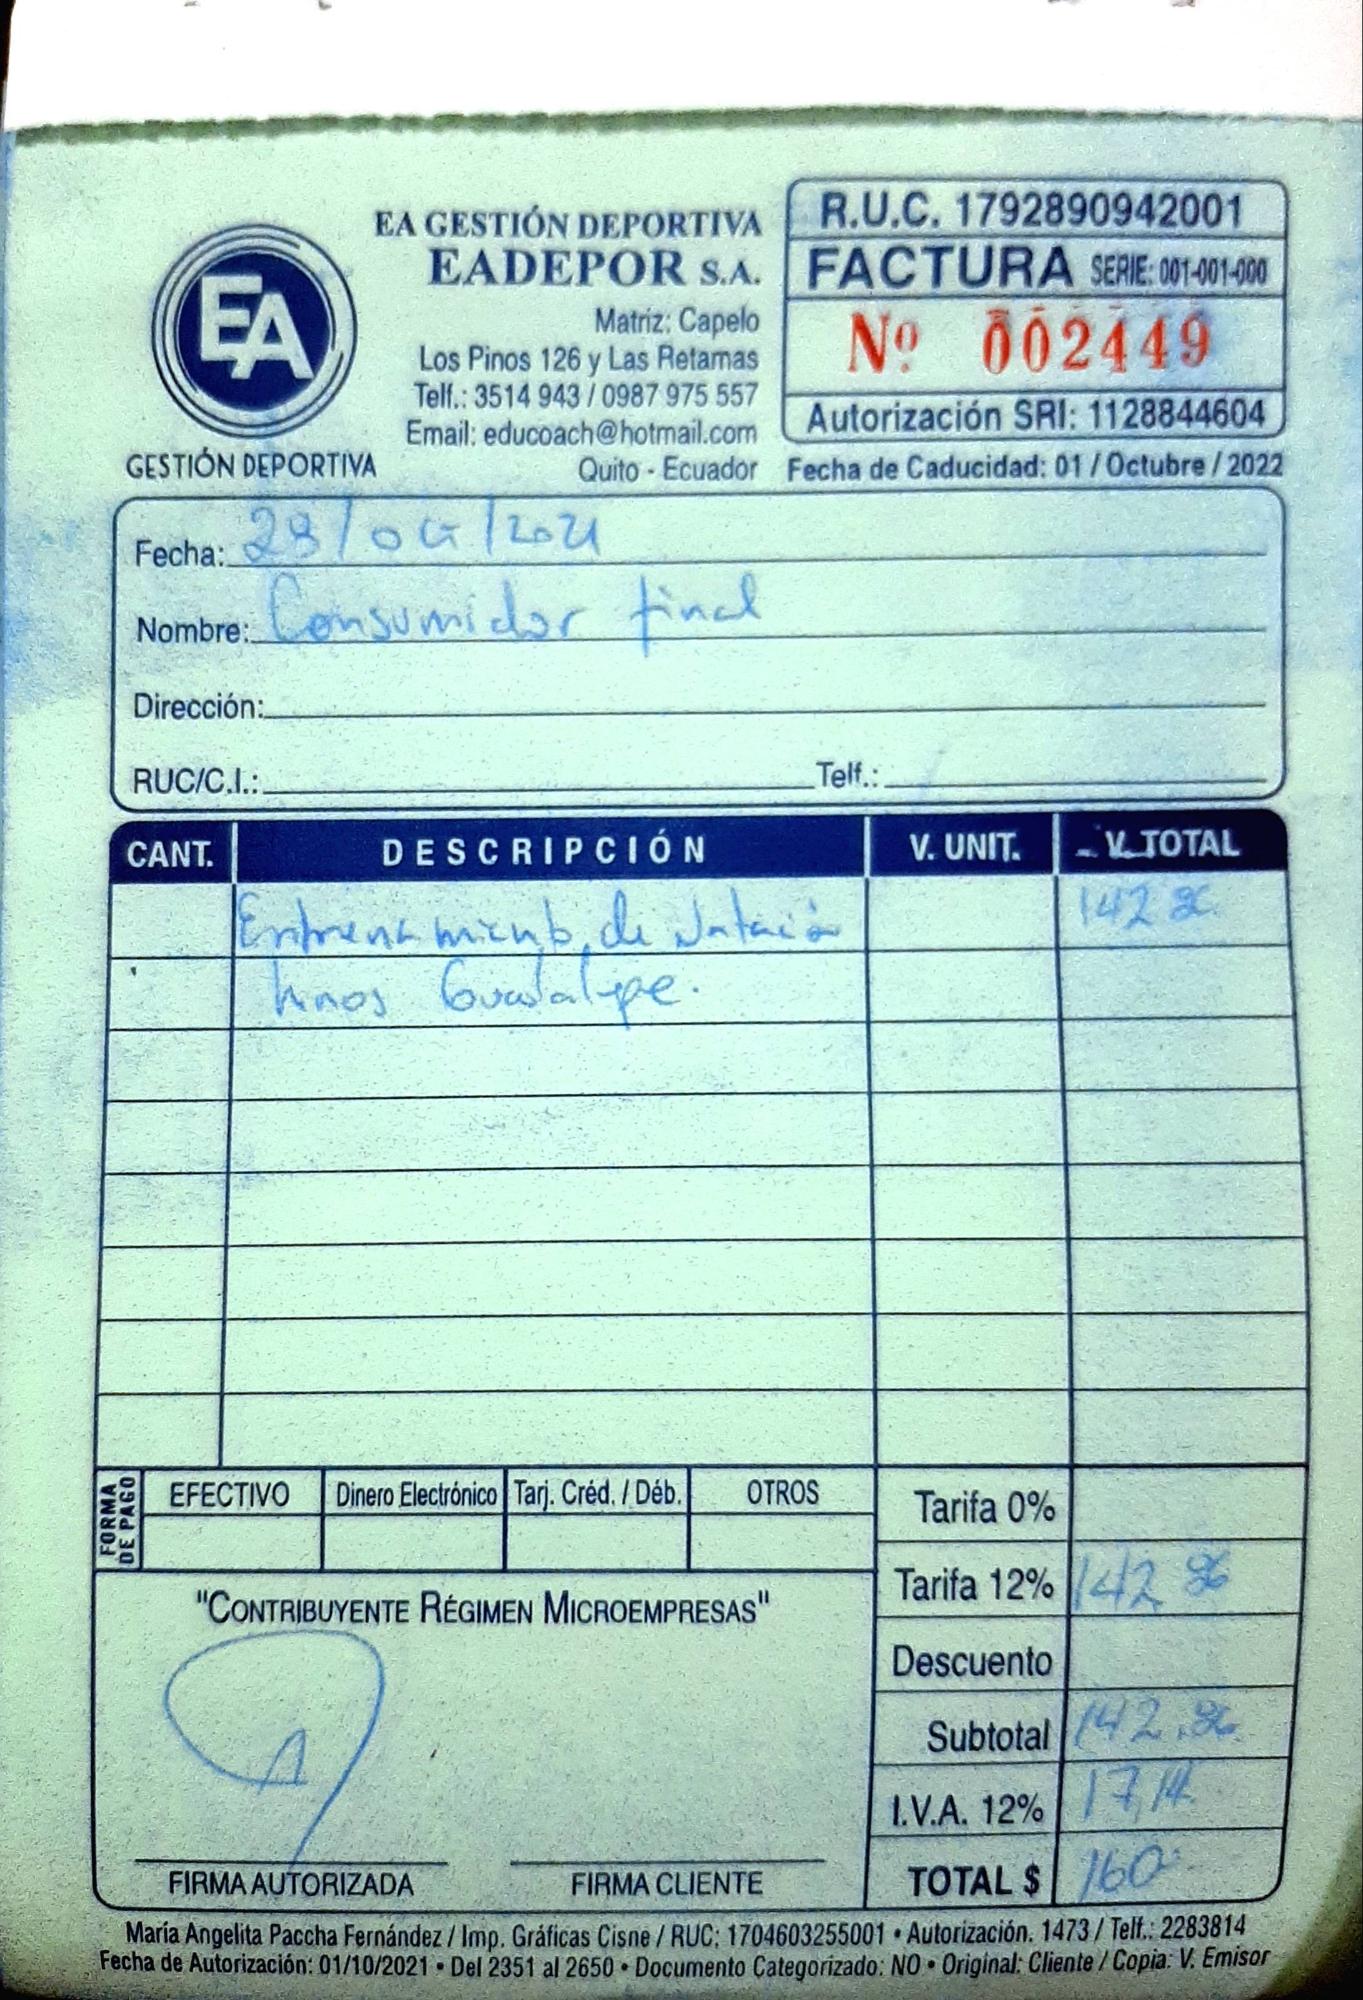 EA GESTIÓN DEPORTIVA
EADEPOR S.A.
Matriz: Capelo
Los Pinos 126 y Las Retamas
Telf.: 3514 943 / 0987 975 557
Email: educoach@hotmail.com
Quito - Ecuador
EA
GESTIÓN DEPORTIVA
R.U.C. 1792890942001
FACTURA SERIE: 001-001-000
Nº 002449
Autorización SRI: 1128844604
Fecha de Caducidad: 01 / Octubre / 2022
Fecha: 29/oct/2021
Nombre: Consumidor final
Dirección:
RUC/C.I.: Telf.:
CANT. DESCRIPCIÓN V. UNIT. V. TOTAL
Entrenamiento de Natación 142 86
hnos Guadalupe.
FORMA DE PAGO
EFECTIVO Dinero Electrónico Tarj. Créd. / Déb. OTROS
Tarifa 0%
Tarifa 12% 142 86
Descuento
Subtotal 142.86
I.V.A. 12% 17,14
TOTAL $ 160
"CONTRIBUYENTE RÉGIMEN MICROEMPRESAS"
FIRMA AUTORIZADA FIRMA CLIENTE
María Angelita Paccha Fernández / Imp. Gráficas Cisne / RUC: 1704603255001 • Autorización. 1473 / Telf.: 2283814
Fecha de Autorización: 01/10/2021 • Del 2351 al 2650 • Documento Categorizado: NO • Original: Cliente / Copia: V. Emisor